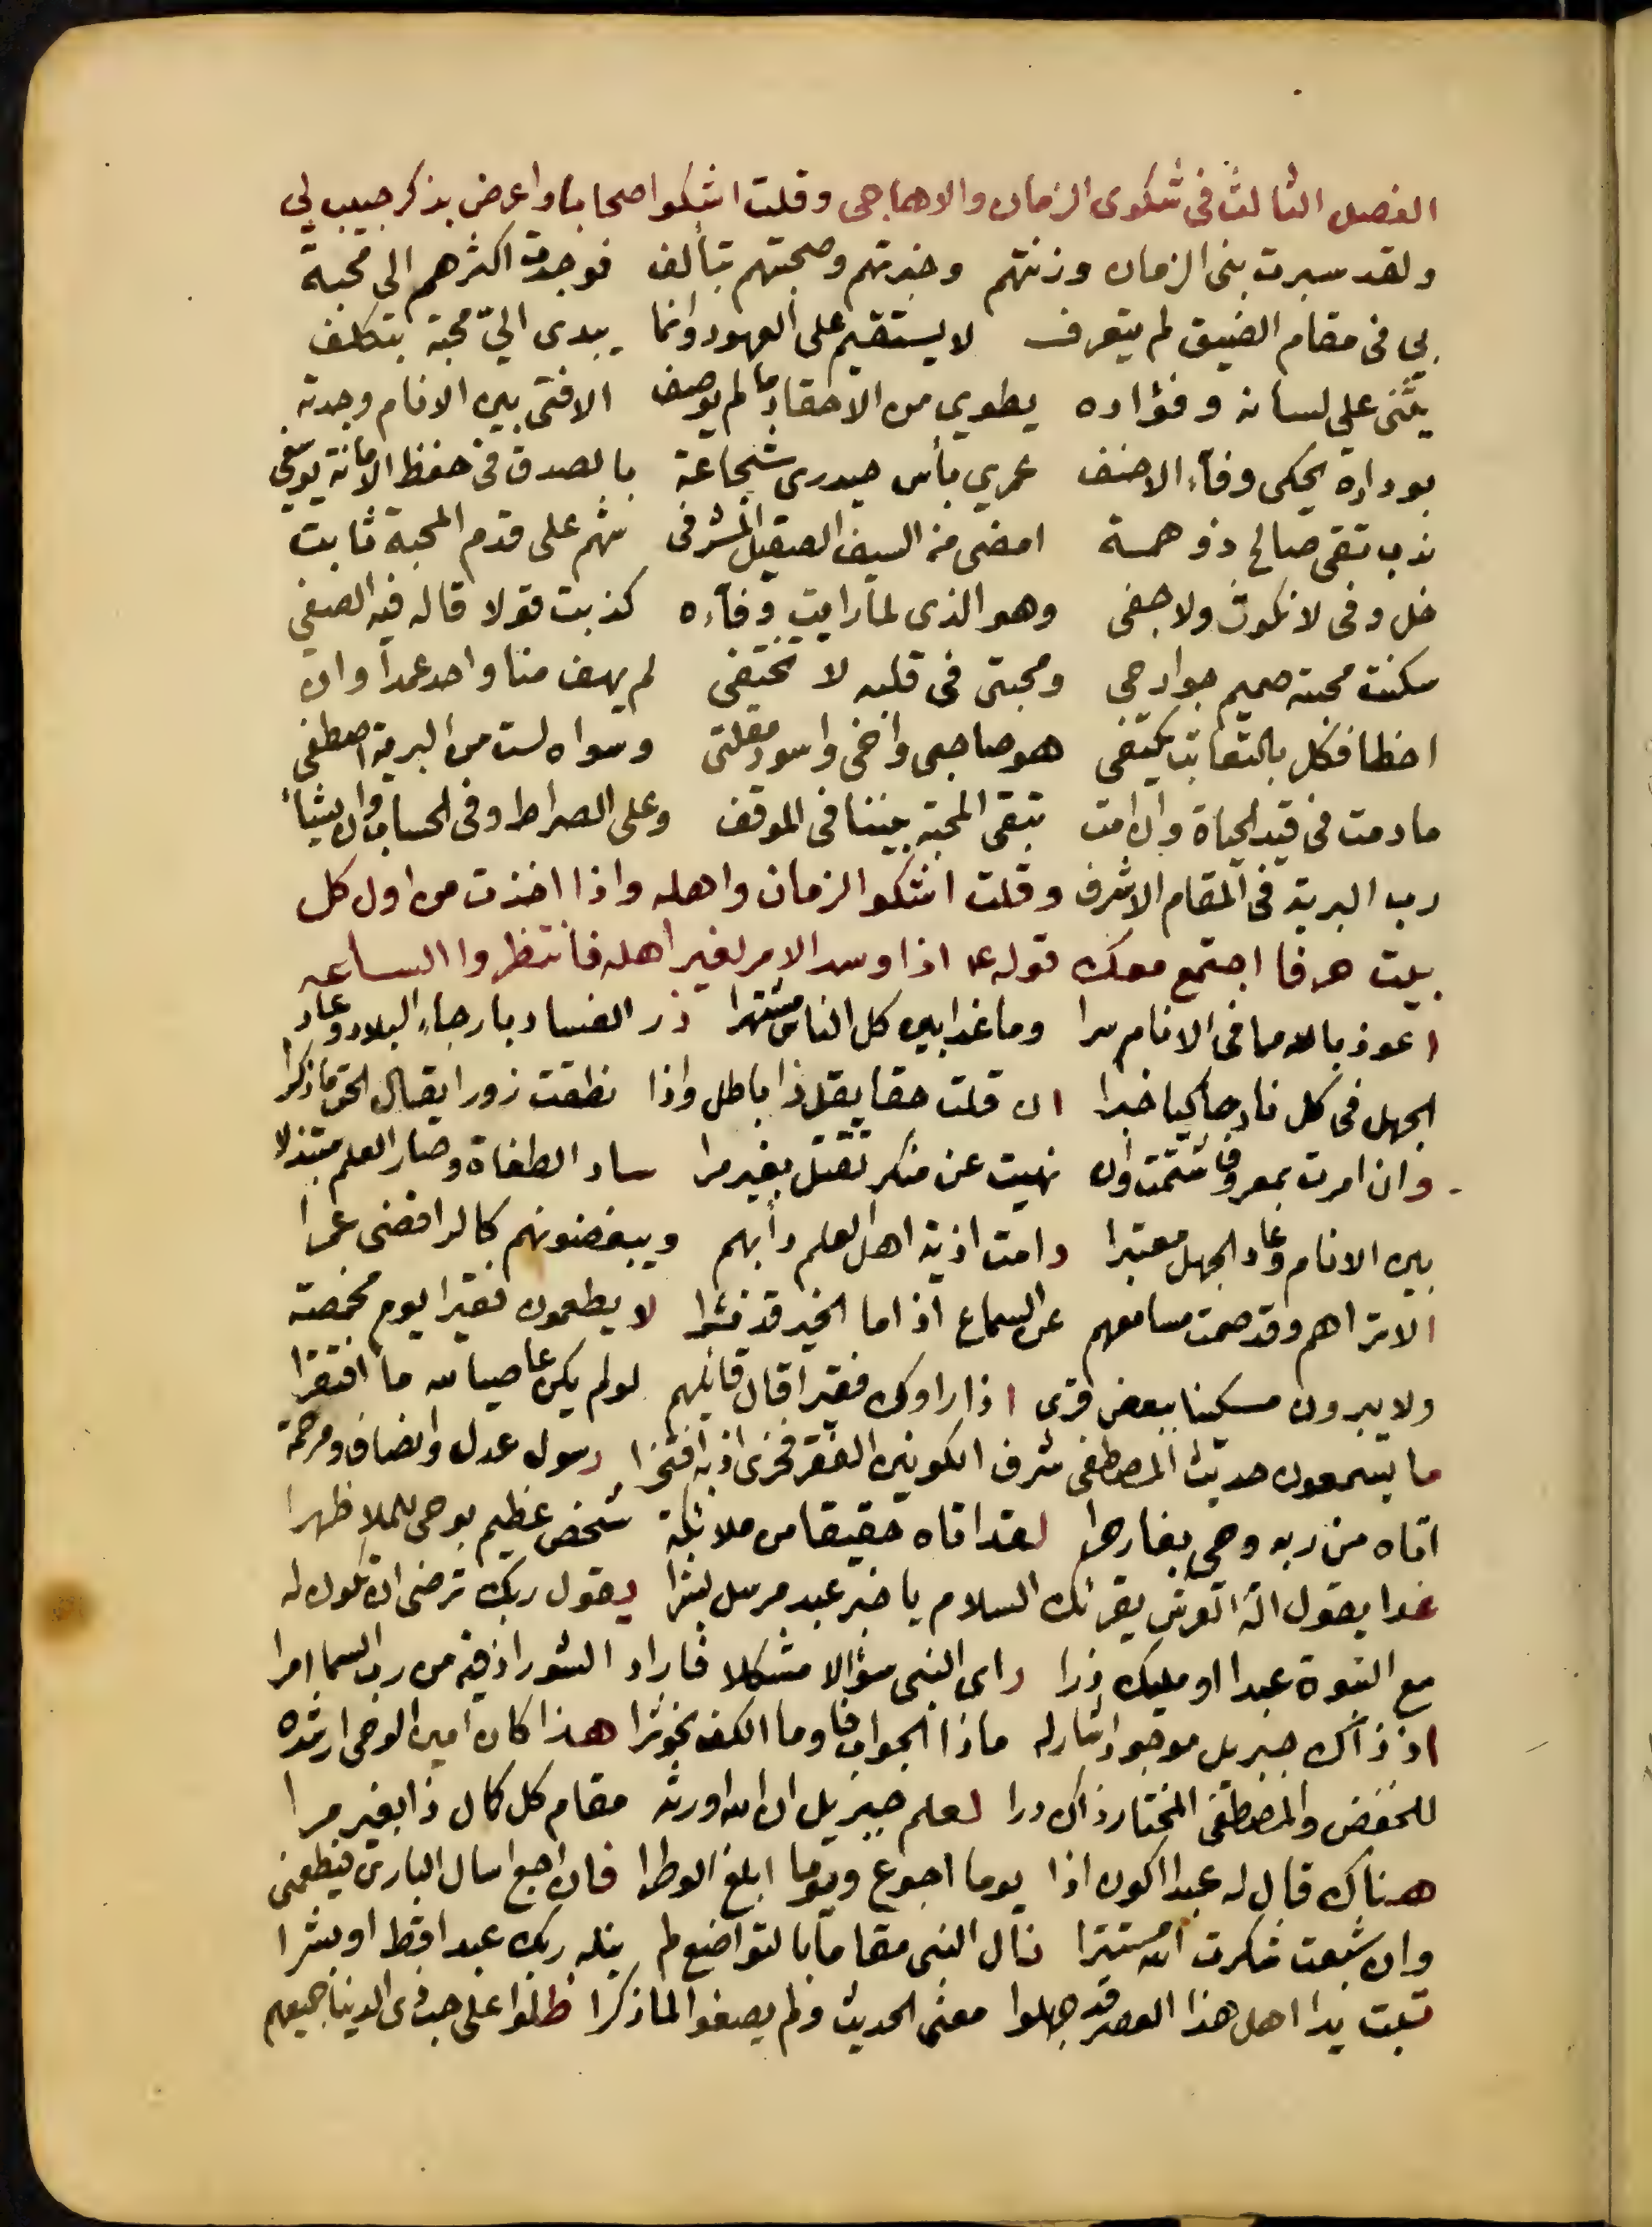 الفصل الثالث فى شكوى الزمان والاهاجى وقلت اشكو اصحابا واعرض بذكر حبيب لي
ولقد سبرت بنى الزمان وزنتهم وخبرتهم وصحبتهم بتألف فوجدت اكثرهم الى محبة
بي فى مقام الضيق لم يتعرف لا يستقيم على العهود وانما يبدى اليّ محبة بتكلف
يثنى على لسانه وفؤاده يطوي من الاحقاد ما لم يوصف الا فتى بين الانام وجدته
بوداده يحكى وفاء الاحنف عمري بأس حيدرى شجاعة بالصدق فى حفظ الامانة يوسفي
ندب تقى صالح ذو همة امضى من السيف الصقيل المشرفى شهم على قدم المحبة ثابت
خل وفى لا نكوث ولا جفى وهو الذى لما رايت وفاءه كذبت قولا قاله فيه الصفي
سكنت محبته صميم جوارحى ومحبتى فى قلبه لا تختفى لم يهف منا واحد عمدا وان
اخطا فكل بالتعاتب يكتفى هو صاحبى واخى واسود مقلتى وسواه لست من البرية اصطفى
ما دمت فى قيد الحياة وان امت تبقى المحبة بيننا فى الموقف وعلى الصراط وفى الحساب وان يشأ
رب البرية فى المقام الاشرف وقلت اشكو الزمان واهله واذا اخذت من اول كل
بيت حرفا اجتمع معك قوله ع اذا وسد الامر لغير اهله فانتظروا الساعه
اعوذ بالله مما فى الانام سرا وما غدا بين كل الناس مشتهرا ذر الفساد بارجاء البلاد وعاد
الجهل فى كل ناد حاكيا خبرا ان قلت حقا يقل ذا باطل واذا نطقت زورا يقال الحق ما ذكرا
وان امرت بمعروف شتمت وان نهيت عن منكر تقتل بغير مرا ساد الطغاة وصار العلم مبتذلا
بين الانام وعاد الجهل معتبرا دامت اذية اهل العلم دأبهم ويبغضونهم كالرافضى عمرا
الا تراهم وقد صمت مسامعهم عن السماع اذا ما الخير قد نشرا لا يطعمون فقيرا يوم مخمصة
ولا يبرون مسكينا ببعض قرى اذا راوك فقيرا قال قائلهم لو لم يكن عاصيا لله ما افتقرا
ما يسمعون حديث المصطفى شرف الكونين الفقر فخرى اذ به افتخرا رسول عدل وانصاف ومرحمة
اتاه من ربه وحي بغار حرا لقد اتاه حقيقا من ملائكة شخص عظيم بوحى للملا ظهرا
غدا يقول اله العرش يقرئك السلام يا خير عبد مرسل بشرا يقول ربك ترضى ان تكون له
مع النبوة عبدا او مليك ذرا راى النبى سؤالا مشكلا فاراد الشور اذ فيه من رب السما امرا
اذ ذاك جبريل موجود اشار له ماذا الجواب فاوما الكف نحو ثرا هذا كان امين الوحى ارشده
للخفض والمصطفى المختار ذاك درا لعلم جبريل ان الله اورثه مقام كل كمال ذا بغير مرا
هناك قال له عبدا اكون اذا يوما اجوع ويوما ابلغ الوطرا فان اجع اسال البارى فيطعمنى
وان شبعت شكرت الله مستترا نال النبى مقاما بالتواضع لم ينله ربك عبدا قط او بشرا
تبت يدا اهل هذا العصر قد جهلوا معنى الحديث ولم يصغوا لما ذكرا ظلوا على جدوى الدينا جميعهم